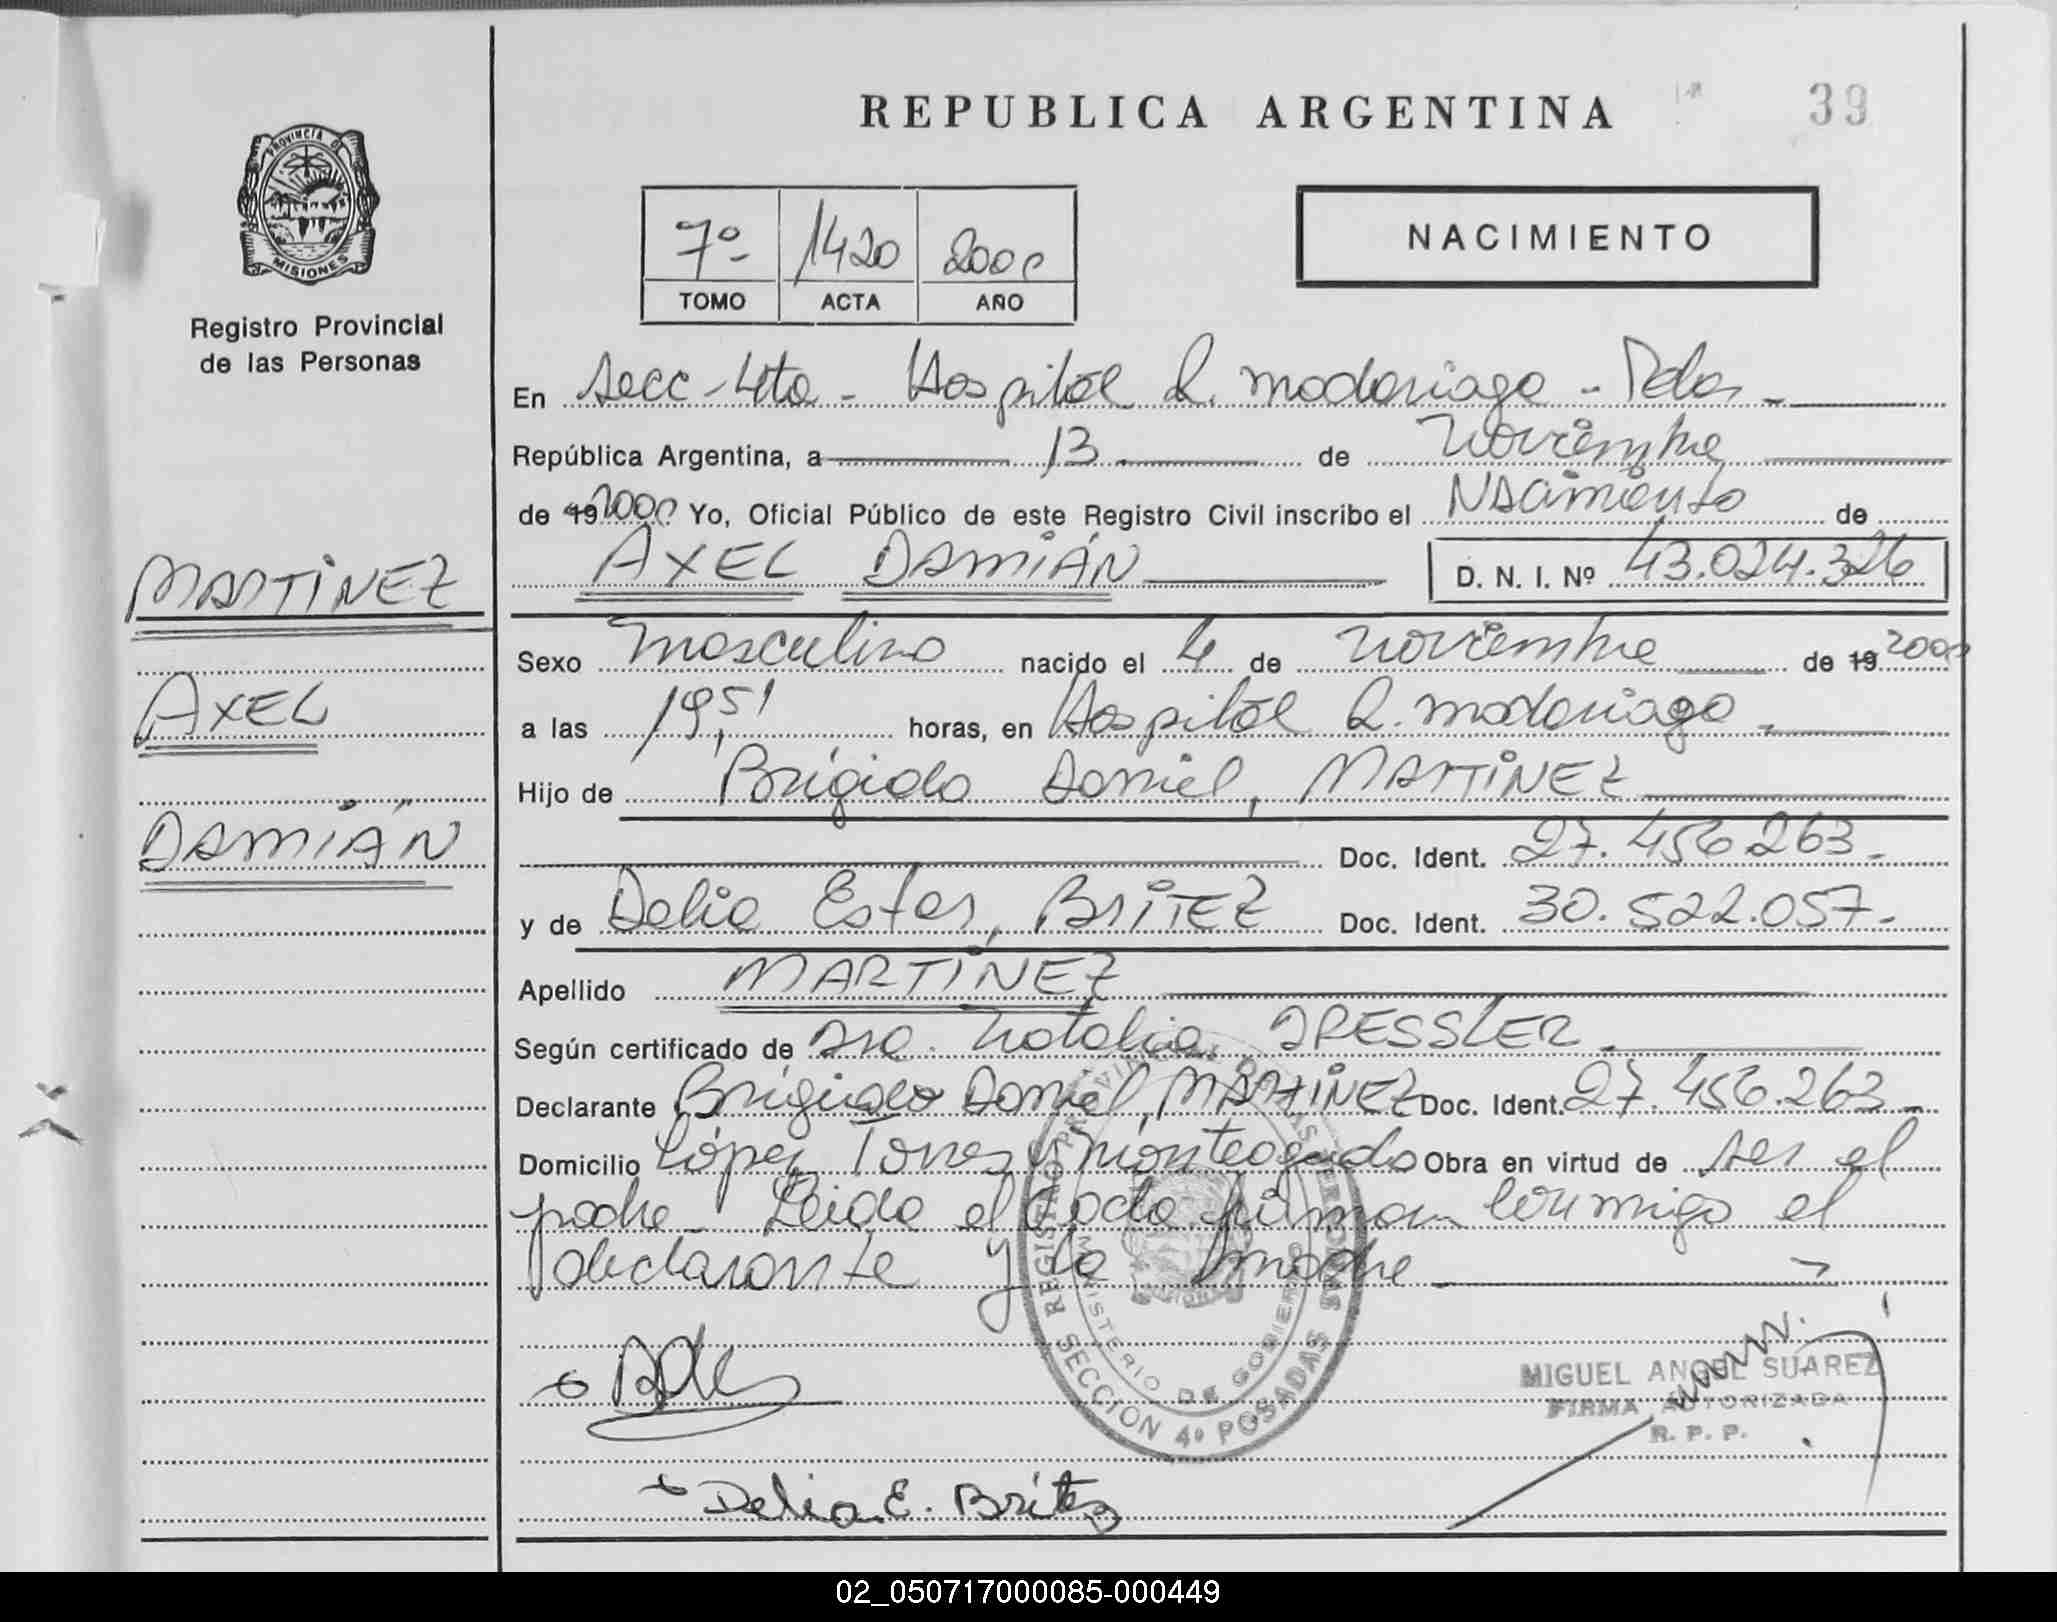 REPUBLICA ARGENTINA
39
PROVINCIA DE
MISIONES
Registro Provincial
de las Personas
7º 1420 2000
TOMO ACTA AÑO
NACIMIENTO
En Secc - 4ta - Hospital R. Madariaga - Pdas -
República Argentina, a 13 de Noviembre
de 19 2000 Yo, Oficial Público de este Registro Civil inscribo el Nacimiento de
AXEL DAMIÁN D. N. I. Nº 43.024.326
MARTINEZ
AXEL
DAMIÁN
Sexo Masculino nacido el 4 de Noviembre de 19 2000
a las 19,51 horas, en Hospital R. Madariaga -
Hijo de Brígido Daniel, MARTINEZ
Doc. Ident. 27.456.263 -
y de Delia Ester, BRITEZ Doc. Ident. 30.522.057 -
Apellido MARTINEZ
Según certificado de Dra. Natalia DRESSLER -
Declarante Brígido Daniel, MARTINEZ Doc. Ident. 27.456.263 -
Domicilio López Torres y Monteagudo Obra en virtud de ser el
padre - Leida el acta firman conmigo el
declarante y la madre
REGISTRO PROVINCIAL DE LAS PERSONAS
MINISTERIO DE GOBIERNO
SECCION 4º POSADAS
MIGUEL ANGEL SUAREZ
FIRMA AUTORIZADA
R. P. P.
Delia E. Britez
02_050717000085-000449